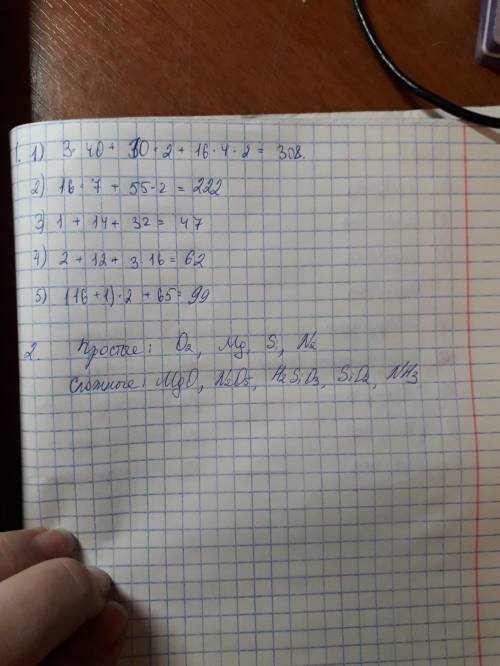 1. 1) 3·40 + 30·2 + 16·4·2 = 308.
2) 16·7 + 55·2 = 222
3) 1 + 14 + 32 = 47
4) 2 + 12 + 3·16 = 62
5) (16+1)·2 + 65 = 99
2. Простые: O2, Mg, Si, N2
Сложные: MgO, N2O5, H2SiO3, SiO2, NH3